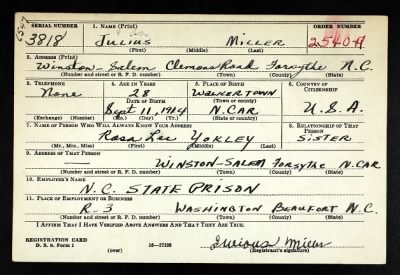 SERIAL NUMBER 1. NAME (Print) ORDER NUMBER
3818 JULIUS MILLER 2540A
(First) (Middle) (Last)
2. ADDRESS (Print)
Winston-Salem Clemons Road Forsythe N.C.
(Number and street or R. F. D. number) (Town) (County) (State)
3. TELEPHONE 4. AGE IN YEARS 5. PLACE OF BIRTH 6. COUNTRY OF CITIZENSHIP
None 28 WALKERTOWN
DATE OF BIRTH (Town or county)
Sept 11, 1914 N.CAR. U.S.A.
(Exchange) (Number) (Mo.) (Day) (Yr.) (State or country)
7. NAME OF PERSON WHO WILL ALWAYS KNOW YOUR ADDRESS 8. RELATIONSHIP OF THAT PERSON
Rosa Lee YOKLEY SISTER
(Mr., Mrs., Miss) (First) (Middle) (Last)
9. ADDRESS OF THAT PERSON
— WINSTON-SALEM Forsythe N.CAR
(Number and street or R. F. D. number) (Town) (County) (State)
10. EMPLOYER'S NAME
N.C. STATE PRISON
11. PLACE OF EMPLOYMENT OR BUSINESS
R-3 WASHINGTON BEAUFORT N.C.
(Number and street or R. F. D. number) (Town) (County) (State)
I AFFIRM THAT I HAVE VERIFIED ABOVE ANSWERS AND THAT THEY ARE TRUE.
REGISTRATION CARD
D. S. S. Form 1 (over) 16—17105 Miller
(Registrant's signature)